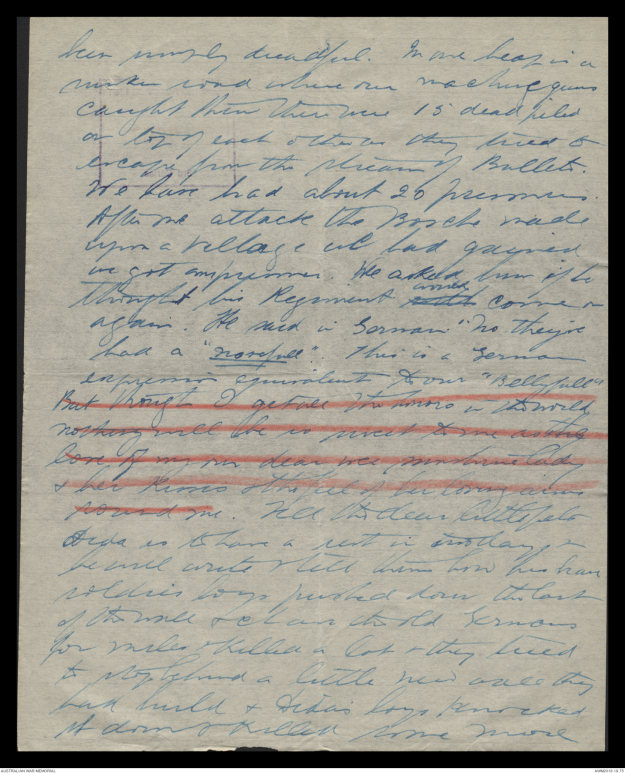 been simply dreadful. In one heap in a
sunken road where our machine guns
caught them there were 15 dead piled
on top of each other as they tried to
escape from the stream of Bullets.
We have had about 20 prisoners.
After one attack the Bosche made
upon a village we had gained
we got one prisoner. We asked him if he
thought his Regiment would come on
again. He said in German "No they've
had a "nosefull". This is a German
expression equivalent to our "Bellyfull"
But though I get all the honors in the world
nothing will be so sweet to me as the
love of my own dear wee lady
& her kisses & the feel of her loving arms
round me. Tell the dear little
Dida is to have a rest in days &
he will write & tell them how his
soldier boys pushed down the last
of the wall & chase the old Germans
for miles & killed a lot & they tried
to stop behind a little new wall they
had build & Dida's boys knocked
it down & killed some more
AUSTRALIAN WAR MEMORIAL